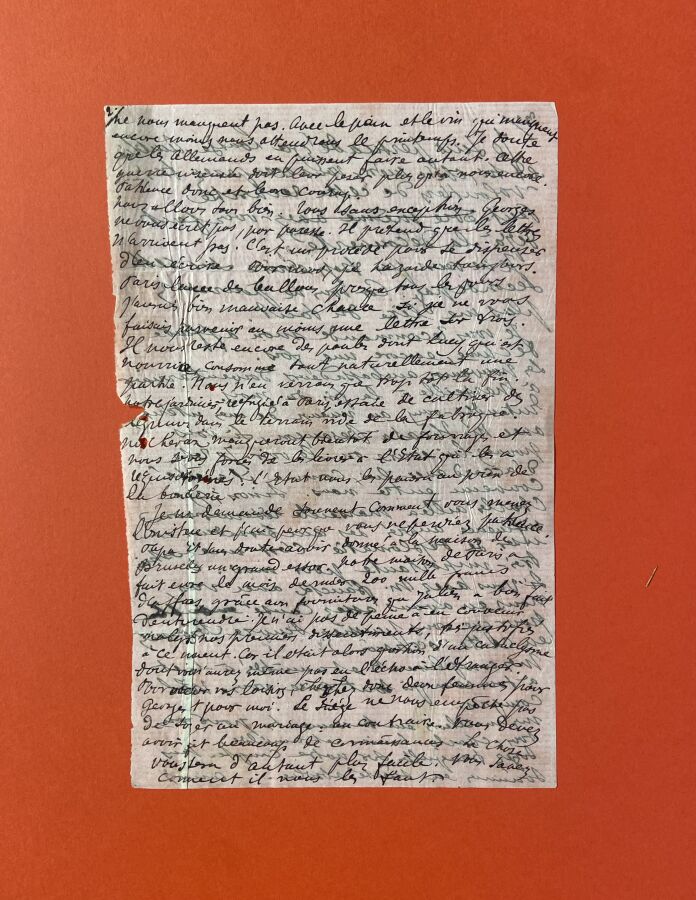 2/ ne nous manquent pas. Avec le pain et le vin qui manquent
encore moins nous attendrons le printemps. Je doute
que les Allemands en puissent faire autant. Cette
guerre insensée doit leur peser plus qu'à nous encore.
Patience donc et leur courage.
Nous allons tous bien, tous sans exception. Georges
ne vous écrit pas, par paresse. Il prétend que les lettres
n'arrivent pas. C'est un procédé pour se dispenser
d'en écrire. Pour moi, je hazarde toujours.
Paris lance des ballons presque tous les jours
J'aurais bien mauvaise chance si je ne vous
faisais parvenir au moins une lettre sur trois.
Il nous reste encore des poules dont Lucy qui est
nourrice consomme tout naturellement une
partie. Nous n'en verrons que trop tôt la fin.
notre jardinier, refugié à Paris essaie de cultiver des
légumes dans le terrain vide de la fabrique
nos chevaux manqueront bientôt de fourrages et
nous serons forcés de les livrer à l'Etat qui les a
requisitionnés. L'Etat nous les paiera au prix de
la boucherie
Je me demande souvent comment vous menez
l'existence et plus que vous ne perdiez patience.
Pape et sans doute avoir donné à la maison de
Bruxelles un grand essor. notre maison de Paris a
fait encore le mois dernier 200 mille francs
d'affaires grâce aux fournitures que Julien a bien fait
d'entreprendre. Je n'ai pas de peine à en convenir
malgré nos premiers dissentiments,
à ce moment. Car il était alors question d'un cataclysme
dont vous aurez même pas eu l'écho à l'étranger
Pour occuper vos loisirs, cherchez donc deux femmes pour
Georges et pour moi. Le Siège ne nous empêche pas
de songer au mariage au contraire. Vous devez
avoir fait beaucoup de connaissances. La chose
vous sera d'autant plus facile. Vous savez
comment il nous les faut